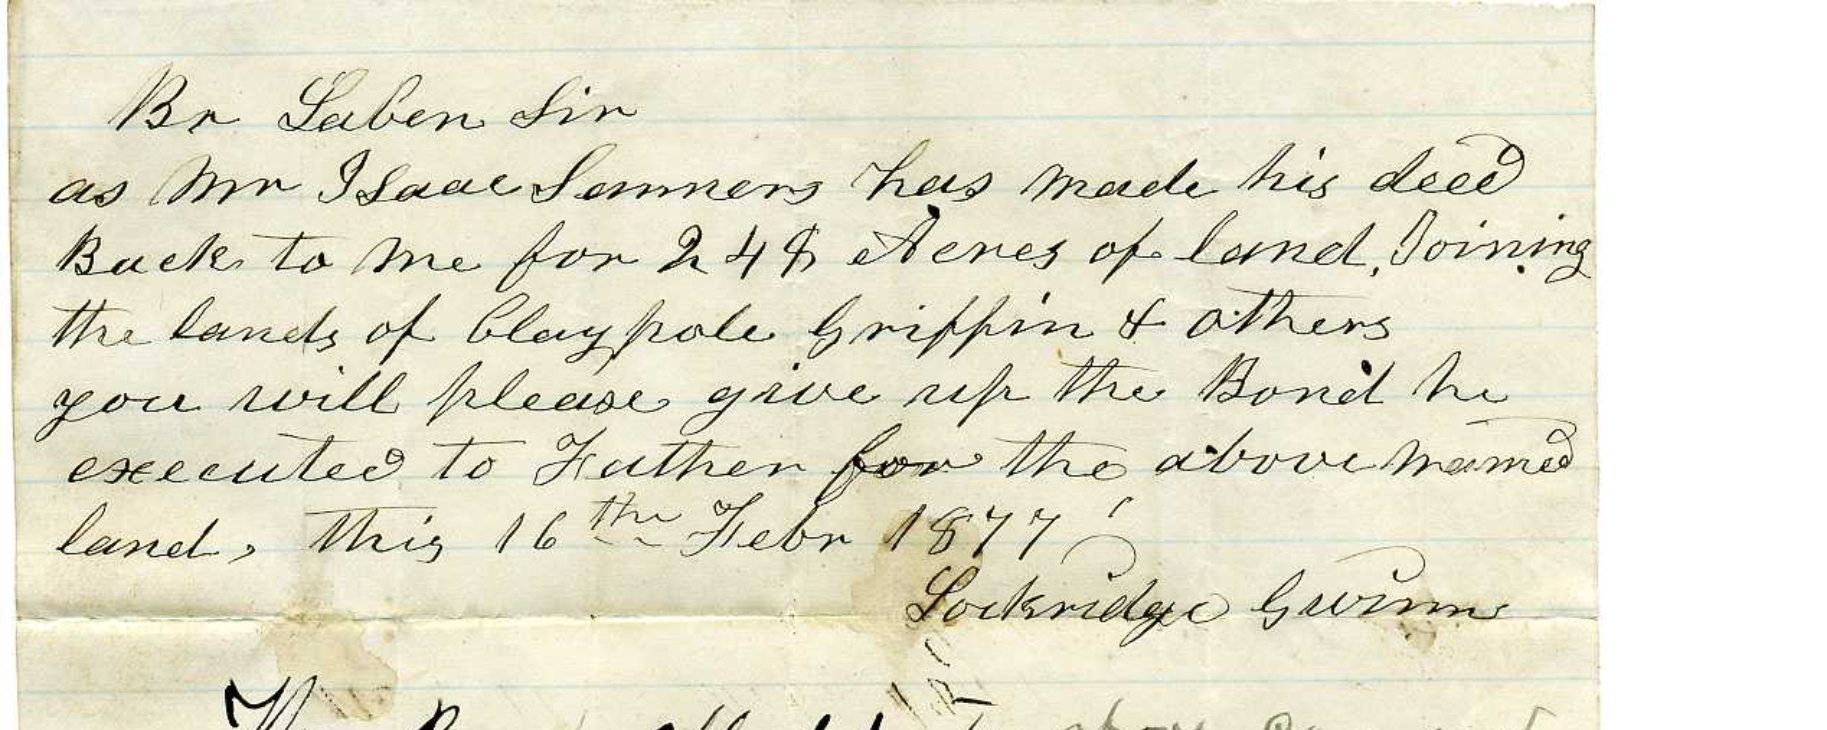 Br Laben Sir
as Mr Isaac Sammers has made his deed
Back to me for 248 Acres of land, Joining
the lands of Claypole Griffin & others
you will please give up the Bond he
executed to Father for the above named
land, this 16th Febr 1877
Lockridge Gwinn
The